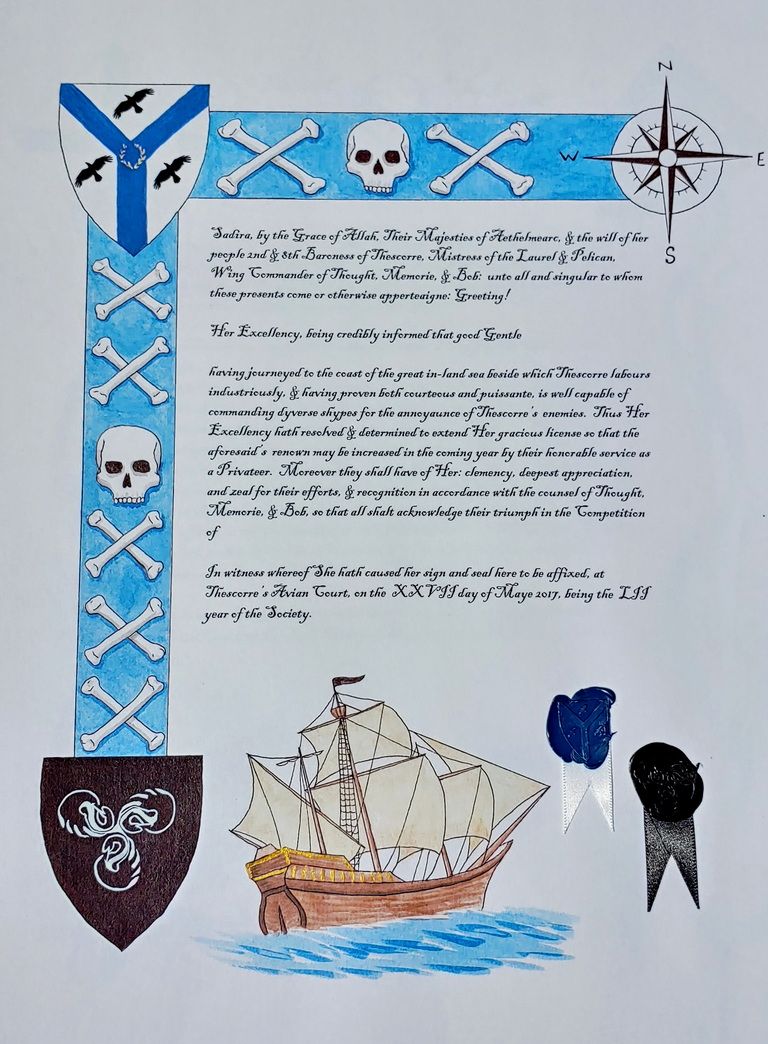 N
W
E
S
Sadira, by the Grace of Allah, Their Majesties of Aethelmearc, & the will of her
people 2nd & 8th Baroness of Thescorre, Mistress of the Laurel & Pelican,
Wing Commander of Thought, Memorie, & Bob: unto all and singular to whom
these presents come or otherwise apperteaigne: Greeting!
Her Excellency, being credibly informed that good Gentle
having journeyed to the coast of the great in-land sea beside which Thescorre labours
industriously, & having proven both courteous and puissante, is well capable of
commanding dyverse shypes for the annoyaunce of Thescorre's enemies. Thus Her
Excellency hath resolved & determined to extend Her gracious license so that the
aforesaid's renown may be increased in the coming year by their honorable service as
a Privateer. Moreover they shall have of Her: clemency, deepest appreciation,
and zeal for their efforts, & recognition in accordance with the counsel of Thought,
Memorie, & Bob, so that all shalt acknowledge their triumph in the Competition
of
In witness whereof She hath caused her sign and seal here to be affixed, at
Thescorre's Avian Court, on the XXVII day of Maye 2017, being the LII
year of the Society.